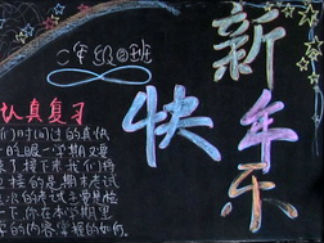 二年级四班
新年快乐
认真复习
们时间过的真快
眨眼一学期又要
来了接下来我们将
是期末考试
的考试主要是检
一下你在本学期里
的内容掌握的如何。